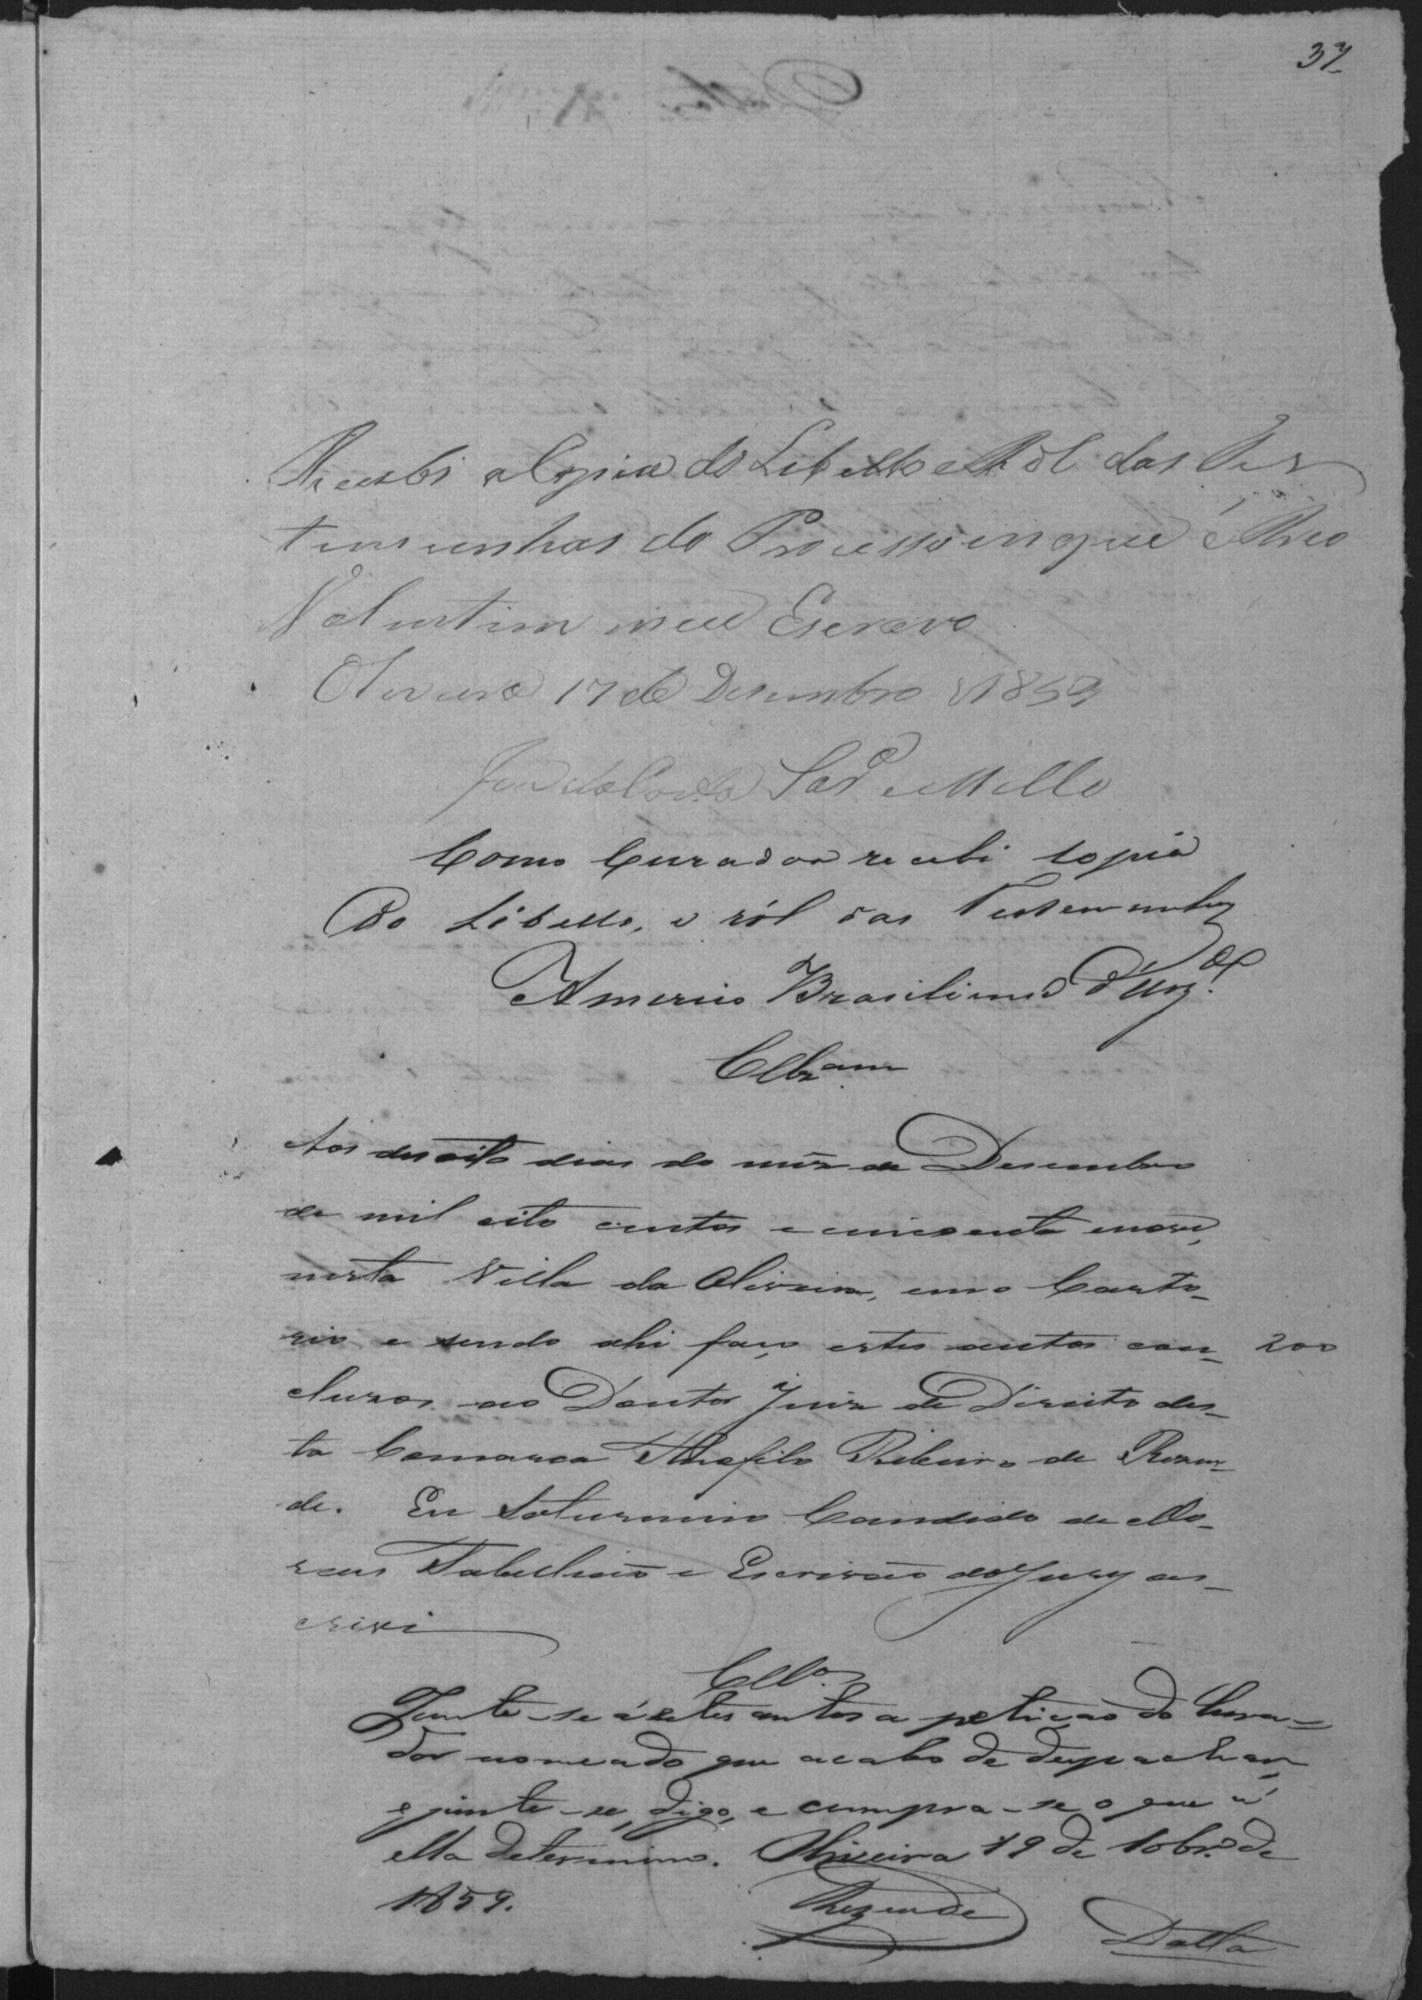 37
Recebi a Copia do Libello e Ról das Tes
temunhas do Processo em que é Reo
Valentim meu Escravo
Oliveira 17 de Desembro d 1859
José da Costa e Mello
Como Curador recebi copia
do Libello, e ról das Testemunhas
Americo Brasiliense d'
Clzam
Aos desoito dias do mez de Desembro
de mil oito centos e cincoenta e nove,
nesta Villa da Oliveira, em o Carto-
rio e sendo ahi faço estes autos con-
200
clusos ao Doutor Juiz de Direito des-
ta Comarca Theofilo Ribeiro de Rezen-
de. Eu Saturnino Candido de Mo-
raes Tabellião e Escrivão do Jury es-
crivi
Clzo
Junte-se á estes autos a petição do Cura-
dor nomeado que acabo de despachar,
e junte-se, digo, e cumpra-se o que n'
ella determino. Oliveira 19 de 10br.o de
1859.
Rezende
Datta